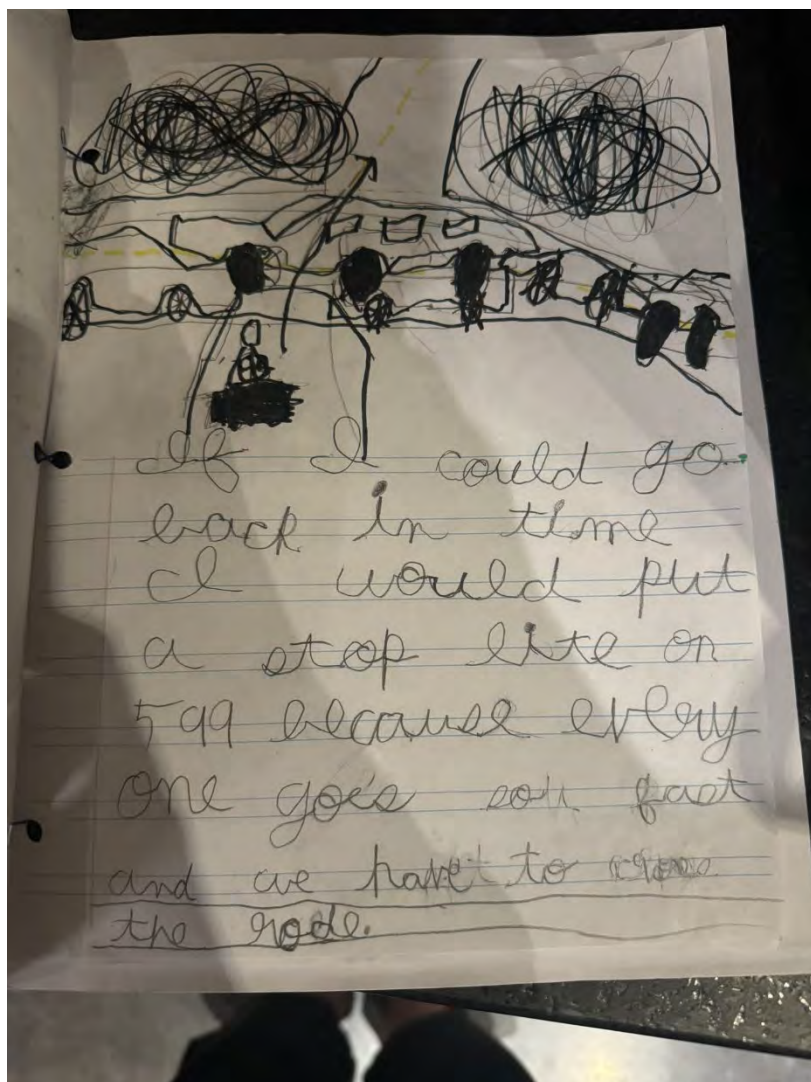 If I could go
back in time
I would put
a stop lite on
599 because every
one goes soh fast
and we have to cross
the rode.